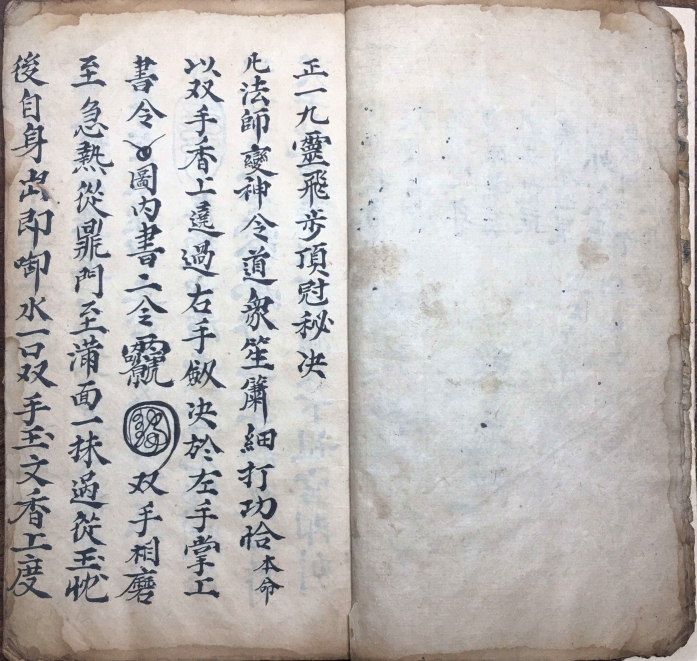 正一九靈飛步頂尅秘决
凡法師變神令道眾笙簫細打功恰本命
以双手香上遶過右手劔决於左手掌上
書令圖內書二令 双手相磨
至急熱從鼎門至滿面一抹過從玉忱
後自身出即啣水一口双手玉文香上度